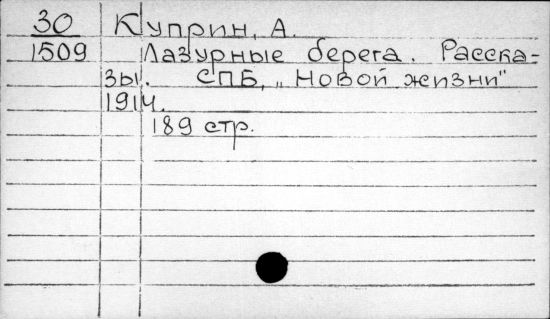 30 Куприн, А.
1509 Лазурные берега. Расска-
зы. СПБ, „Новой жизни"
1914.
189 стр.